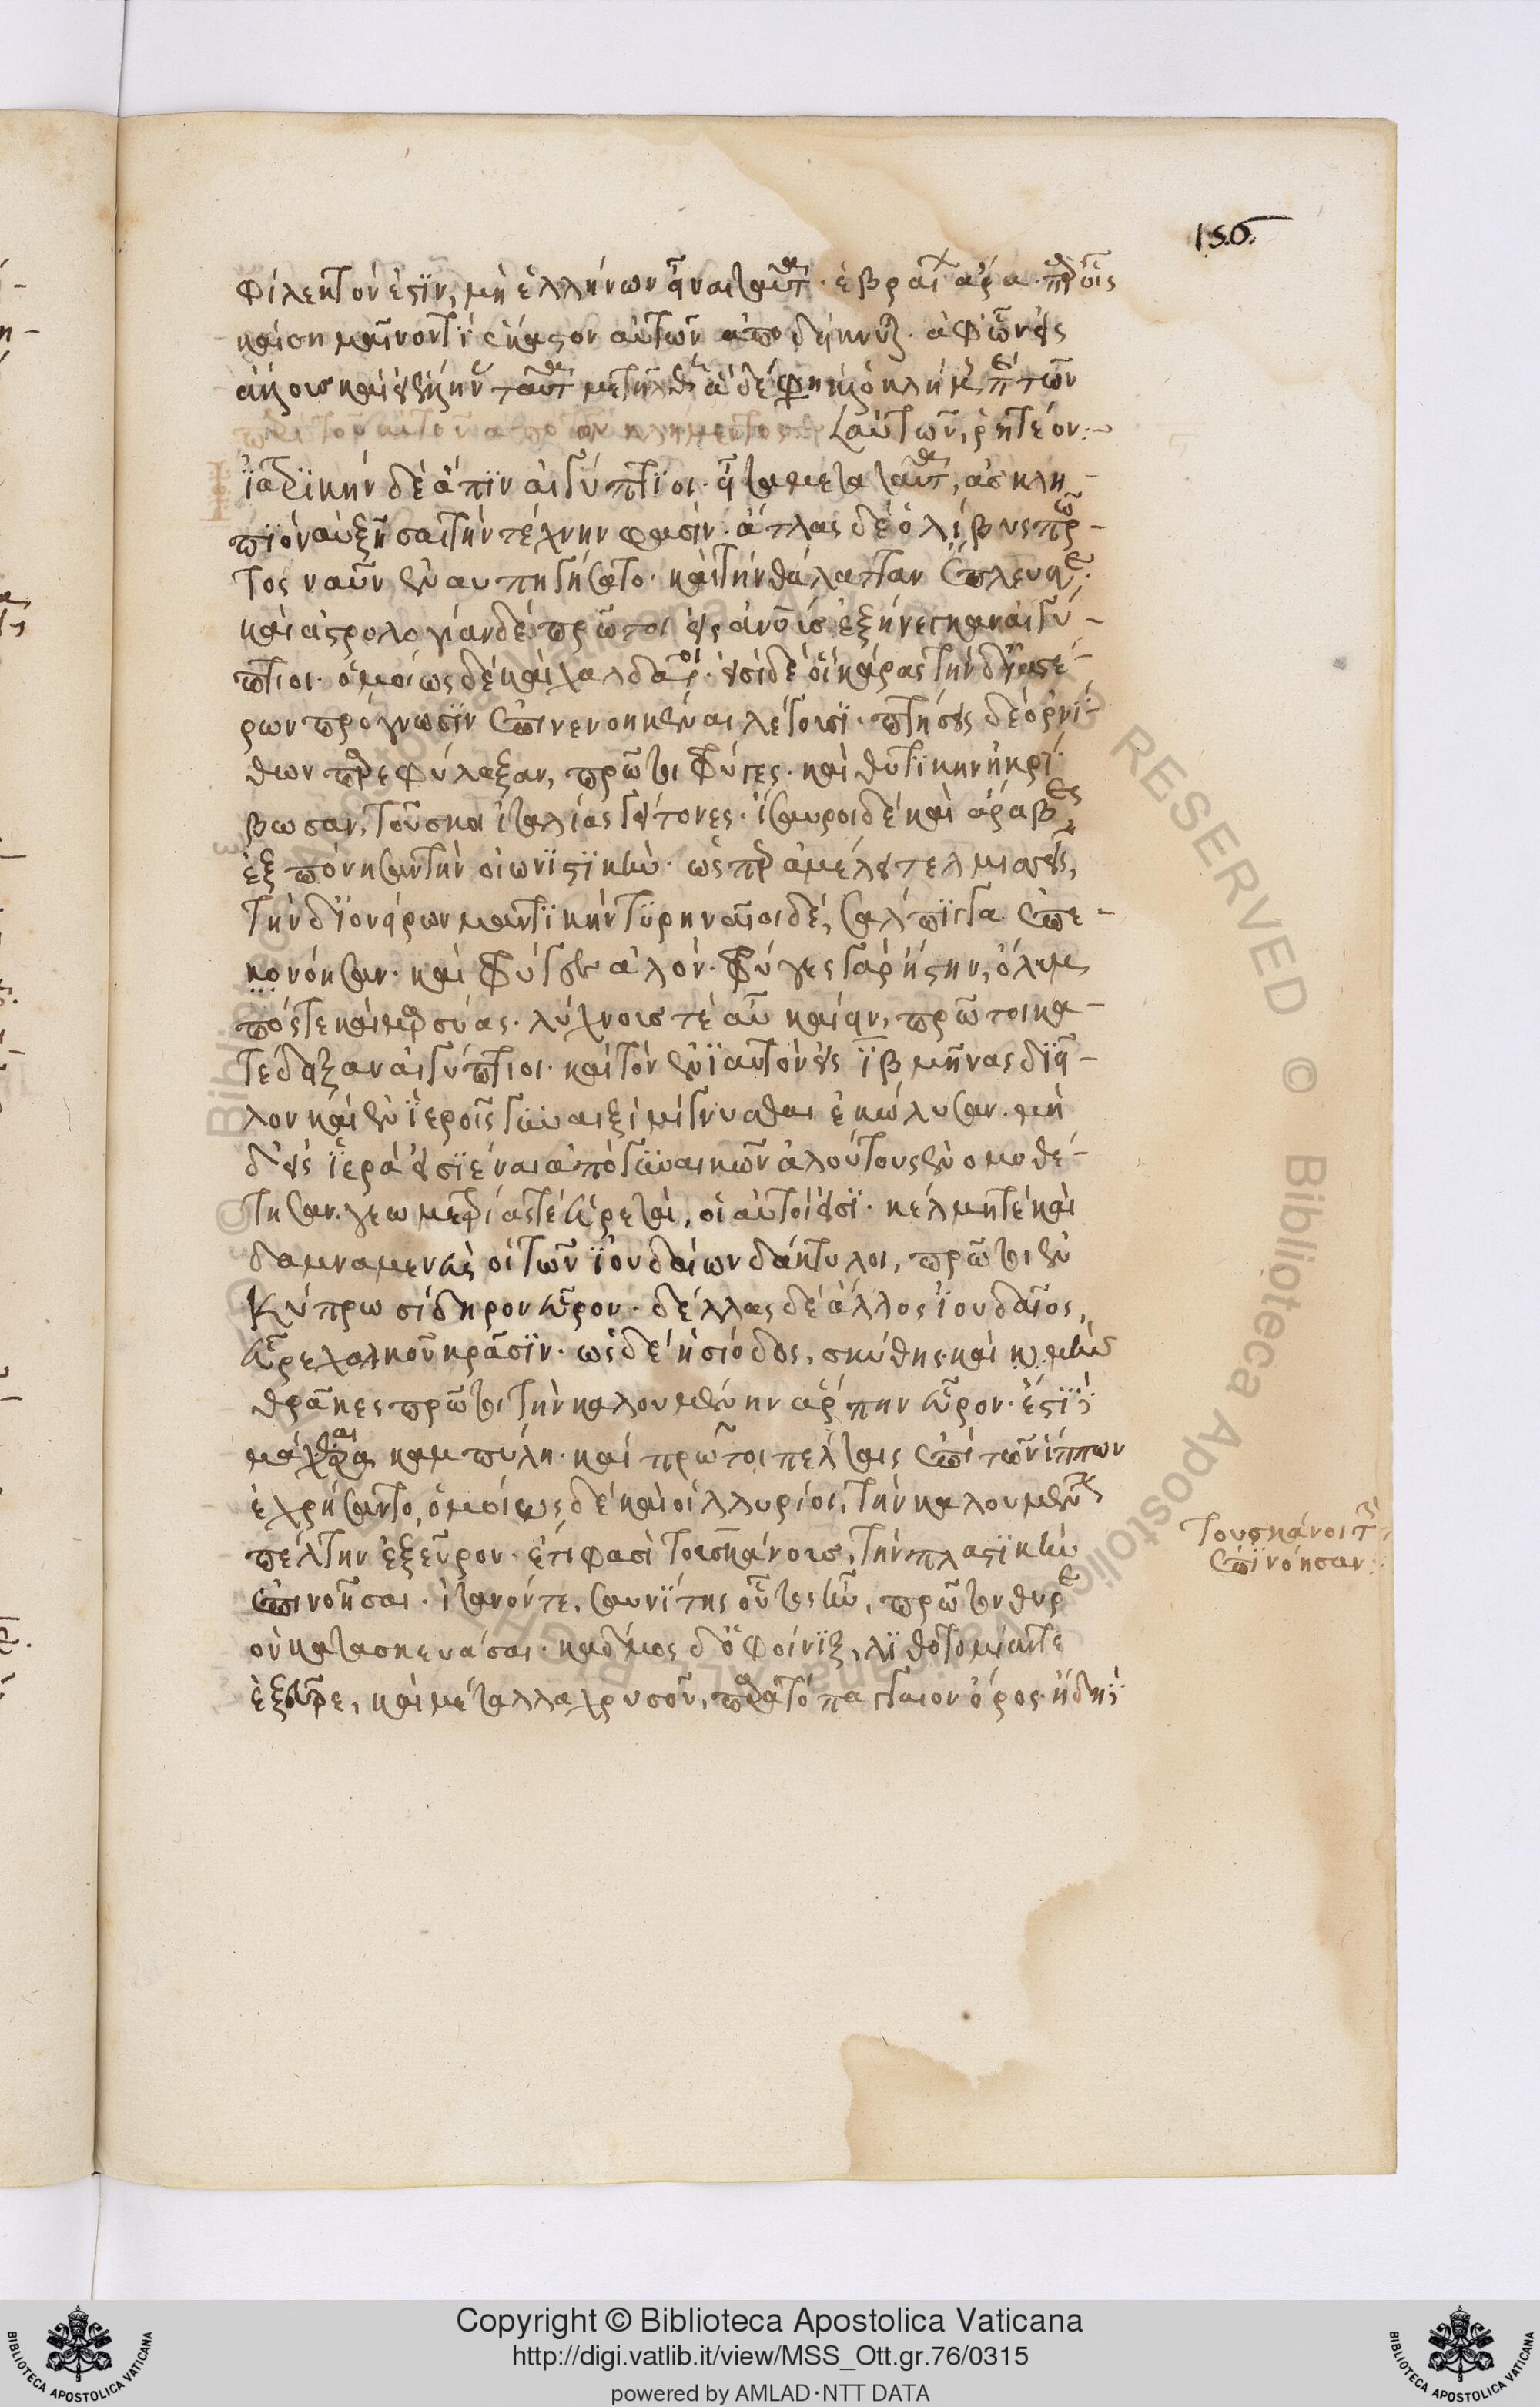 150.
φίλεκτον ἐστὶν, μὴ ἑλλήνων εἶναι ταῦτα·
καὶ σημαίνοντι ἕκαστον αὐτῶν ἀποδείκνυται· ἀφ᾽ ὧν εἰς
αὐτῶν, ῥητέον:-
ἰατρικὴν δὲ ἄπιν αἰγύπτιοι· εἶτα μετὰ ταῦτα, ἀσκλη-
πιὸν αὐξῆσαι τὴν τέχνην φασίν· ἄτλας δὲ ὁ λίβυς πρῶ-
τος ναῦν ἐναυπηγήσατο· καὶ τὴν θάλατταν ἔπλευσε·
καὶ ἀστρολογίαν δὲ πρῶτοι εἰς ἀνθρώποις ἐξήνεγκαν αἰγύ-
πτιοι· ὁμοίως δὲ καὶ χαλδαῖοι· εἰσὶ δὲ οἳ κάρας τὴν δι᾽ ἀστέ-
ρων πρόγνωσιν ἐπινενοηκέναι λέγουσι· πτήσεις δὲ ὀρνί-
θων παρεφύλαξαν, πρῶτοι φρύγες· καὶ θυτικὴν ἠκρί-
βωσαν, τοῦσκοι ἰταλίας γείτονες· ἴσαυροι δὲ καὶ ἄραβες
ἐξεπόνησαν τὴν οἰωνιστικὴν· ὡς παρὰ ἀμέλει τελμισεῖς,
τὴν δι᾽ ὀνείρων μαντικὴν τυρηναῖοι δὲ, σάλπιγγα ἐπε-
νονόησαν· καὶ φρύγες αὐλόν· φρύγες γὰρ ἤστην, ὄλυμ
πός τε καὶ μαρσύας· λύχνους τε αὖ καίειν, πρῶτοι κα-
τέδειξαν αἰγύπτιοι· καὶ τὸν ἐνιαυτὸν εἰς ιβ μῆνας διεῖ-
λον καὶ ἐν ἱεροῖς γυναιξὶ μίγνυσθαι ἐκώλυσαν· μὴ
δ᾽ εἰς ἱερὰ εἰσιέναι ἀπὸ γυναικῶν ἀλούτους ἐνομοθέ-
τησαν· γεωμετρίας τε εὑρεταὶ, οἱ αὐτοὶ εἰσὶ· κέλμης τε καὶ
δαμναμενεὺς οἱ τῶν ἰουδαίων δάκτυλοι, πρῶτοι ἐν
κύπρω σίδηρον εὗρον· δέλλας δὲ ἄλλος ἰουδαῖος,
εὗρε χαλκοῦ κρᾶσιν· ὡς δὲ ἡσίοδος, σκύθης καὶ μὴν
θρᾶκες πρῶτοι τὴν καλουμένην ἅρπην εὗρον· ἔστι δὲ
μάχαιρα καμπύλη· καὶ πρῶτοι πέλταις ἐπὶ τῶν ἵππων
ἐχρήσαντο, ὁμοίως δὲ καὶ οἱ λλυριοὶ, τὴν καλουμένην
πέλτην ἐξεῦρον· ἔτι φασὶ τουσκάνους, τὴν πλαστικὴν
ἐπινοῆσαι· ἰτανόν τε, σαυνίτης οὗτος ἦν, πρῶτον θυρε
ὸν κατασκευάσαι· κάδμος δ᾽ ὁ φοίνιξ, λιθοτομίαν τε
ἐξεῦρε, καὶ μέταλλα χρυσοῦ, παρὰ τὸ παγγαιον ὄρος· ἤδη
τουσκάνοι τί
ἐπινόησαν:
Copyright © Biblioteca Apostolica Vaticana
http://digi.vatlib.it/view/MSS_Ott.gr.76/0315
powered by AMLAD·NTT DATA
BIBLIOTECA APOSTOLICA VATICANA
BIBLIOTECA APOSTOLICA VATICANA